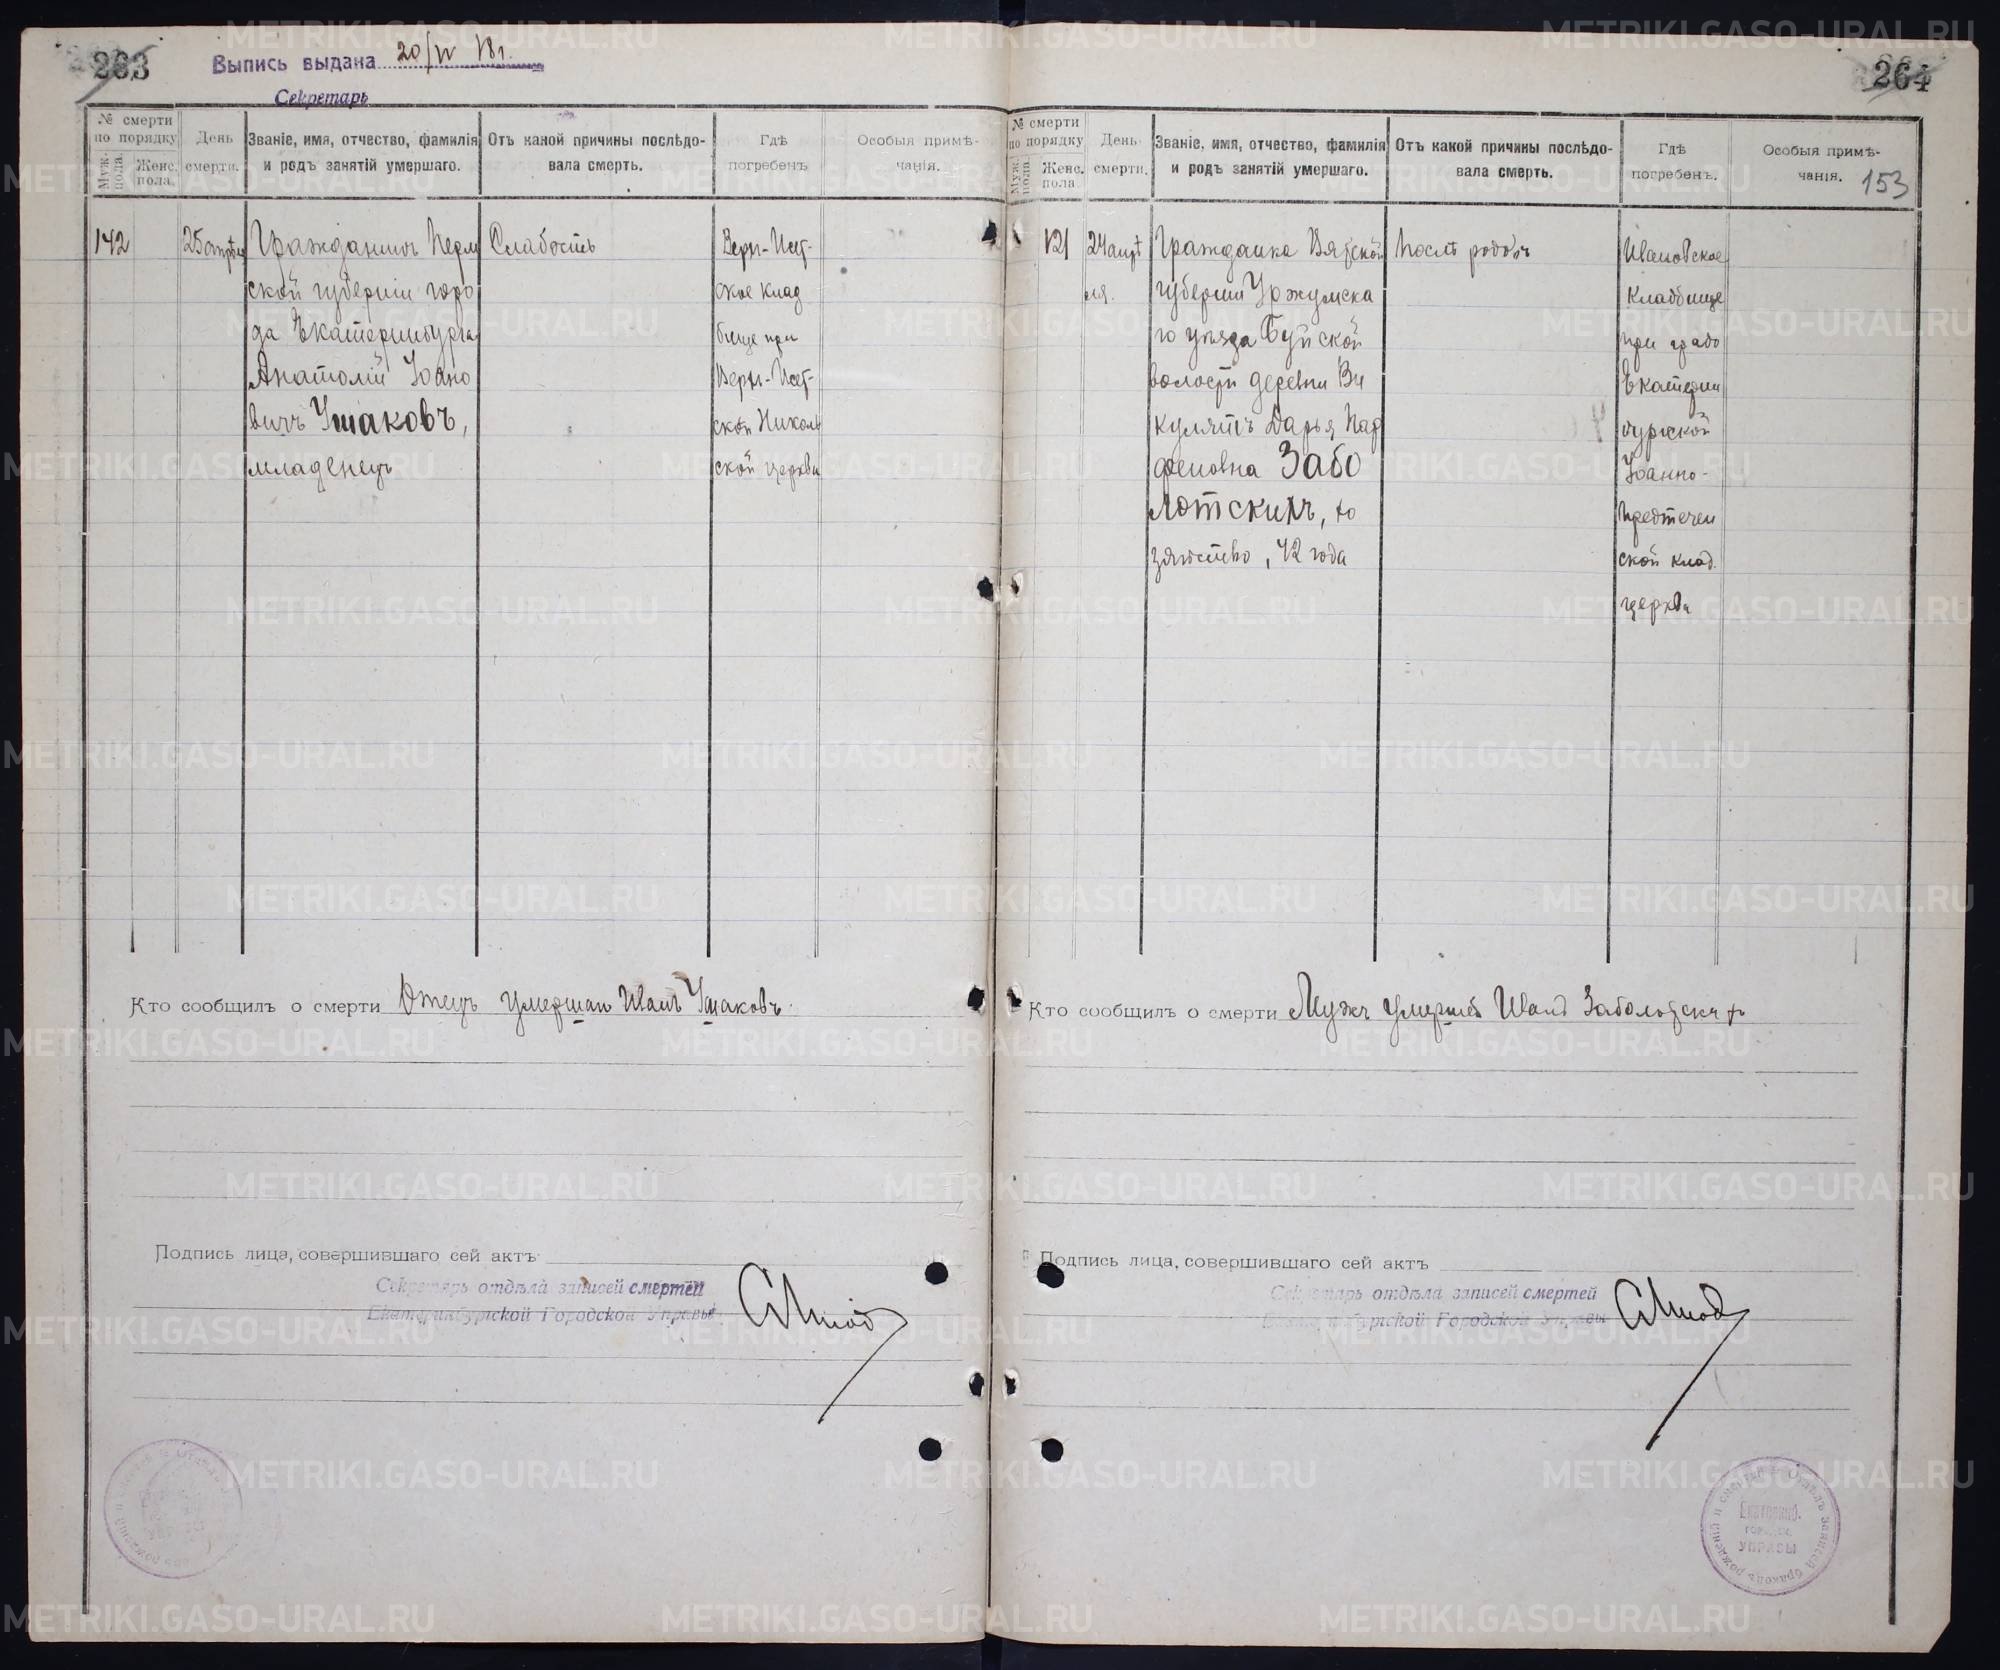 263
Выпись выдана 20/IV 18 г.
Секретарь
№ смерти по порядку
Муж. пола.
Женс. пола.
День смерти.
Званіе, имя, отчество, фамилія
и родъ занятій умершаго.
Отъ какой причины послѣдо-
вала смерть.
Гдѣ
погребенъ
Особыя примѣ-
чанія.
142
25 апрѣля
Гражданинъ Перм
ской губерніи горо
да Екатеринбурга
Анатолій Іоано
вичъ Ушаковъ,
младенецъ
Слабость
Верх-Исет-
ское клад
бище при
Верх-Исет-
ской Николь
ской церкви
Кто сообщилъ о смерти Отецъ умершаго Иванъ Ушаковъ.
Подпись лица, совершившаго сей актъ
Секретарь отдѣла записей смертей
Екатеринбургской Городской Управы
264
153
№ смерти
по порядку
Муж. пола
Женс. пола
День
смерти.
Званіе, имя, отчество, фамилія
и родъ занятій умершаго.
Отъ какой причины послѣдо-
вала смерть.
Гдѣ
погребенъ.
Особыя примѣ-
чанія.
121
24 апрѣ
ля.
Гражданка Вятской
губерніи Уржумска
го уѣзда Буйской
волости деревни Ви
Дарья Пар
феновна Забо
лотскихъ, хо
зяйство, 42 года
Послѣ родовъ
Ивановское
кладбище
при градо
Екатерин
бургской
Іоанно-
Предтечен
ской клад.
церкви
Кто сообщилъ о смерти Мужъ умершей Иванъ Заболотскихъ
Подпись лица, совершившаго сей актъ
Секретарь отдѣла записей смертей
Екатеринбургской Городской Управы
Отдѣлъ записей браковъ рожденій и смертей
Екатеринб.
городск.
УПРАВЫ
METRIKI.GASO-URAL.RU